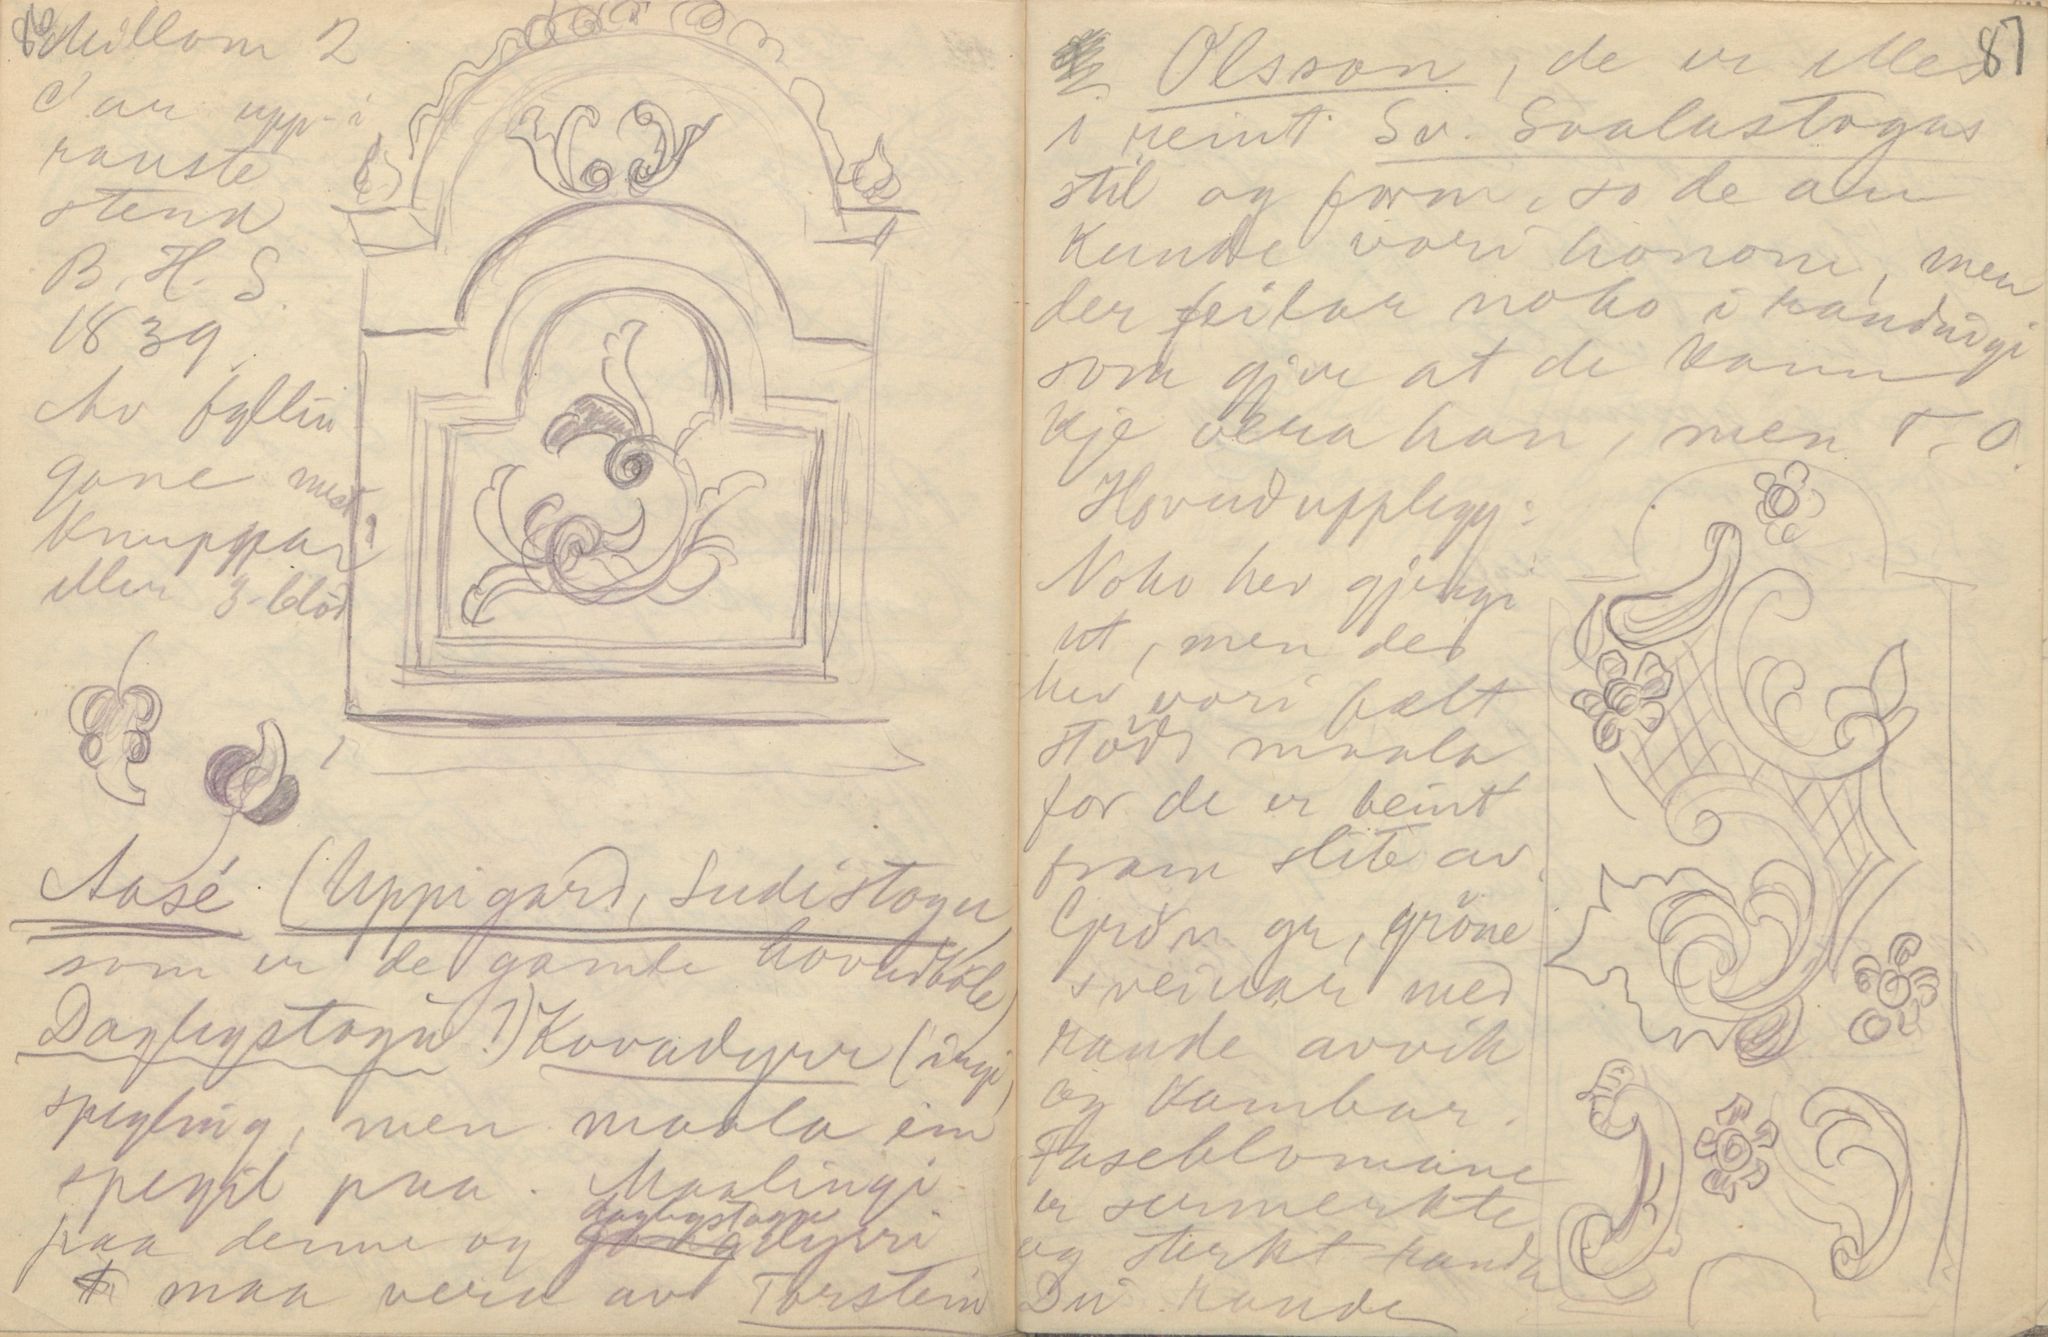 86
Millom 2
C'ar upp-i
rauste
stend
B. H. S.
1839
Av fyllin
gane med
knuppar
eller 3-blöd
Aasé (Uppigard, Sudistogu
som er de gamle hovudböle)
Daglegstogu!) Kovadyrr (ingi
spegling, men maala ein
spegil paa. Maalingi
daglegstogu
paa denne og dyrri
maa vera av Torstein
87
Olsson, de er elles
i reint Sv. Svalastogas
stil og form, so de au
kunde vori honom, men
der feilar noko i handnægi
som gjer at de kann
kje vera han, men T. O.
Hovudupplegg:
Noko hev gjengi
ut, men det
hev vori fælt
stödt maala
for de er beint
fram slite av.
Grön gr, gröne
sveivar med
raude avvik
og kambar.
Faseblomane
er sermerkte
og sterkt
Dei raude